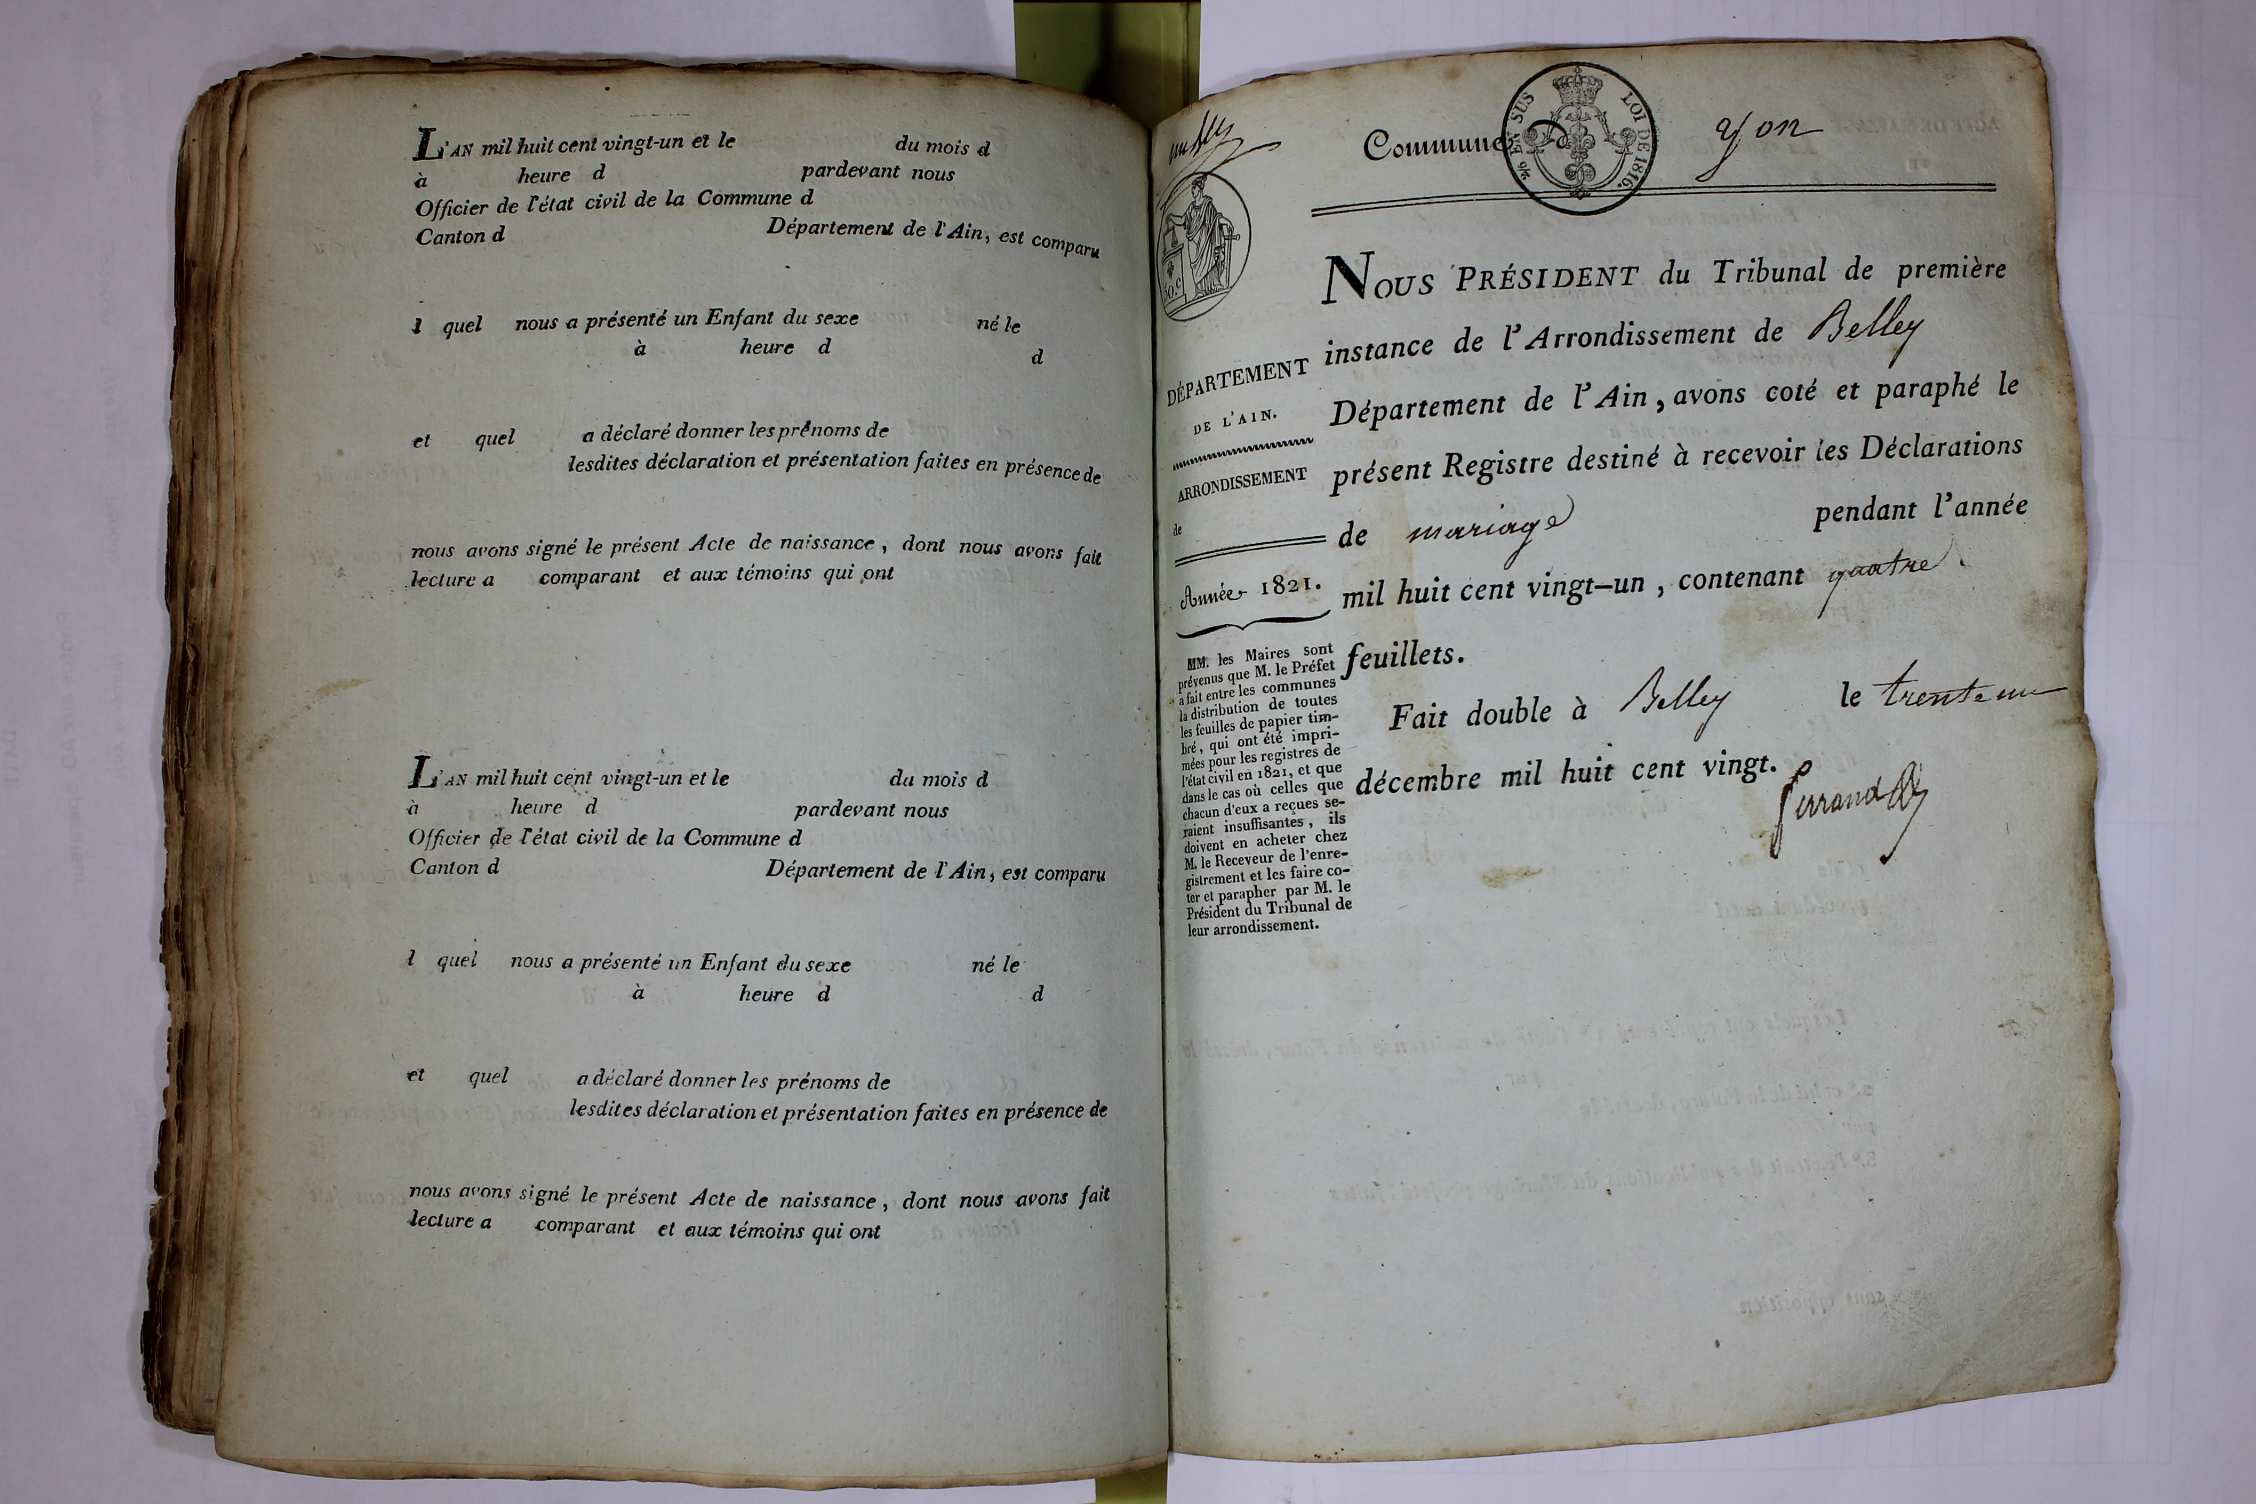 L'AN mil huit cent vingt-un et le du mois d
à heure d pardevant nous
Officier de l'état civil de la Commune d
Canton d Département de l'Ain, est comparu
l quel nous a présenté un Enfant du sexe né le
à heure d d
et quel a déclaré donner les prénoms de
lesdites déclaration et présentation faites en présence de
nous avons signé le présent Acte de naissance, dont nous avons fait
lecture a comparant et aux témoins qui ont
L'AN mil huit cent vingt-un et le du mois d
à heure d pardevant nous
Officier de l'état civil de la Commune d
Canton d Département de l'Ain, est comparu
l quel nous a présenté un Enfant du sexe né le
à heure d d
et quel a déclaré donner les prénoms de
lesdites déclaration et présentation faites en présence de
nous avons signé le présent Acte de naissance, dont nous avons fait
lecture a comparant et aux témoins qui ont
Commune d yon
¼ EN SUS LOI DE 1816.
50.c
DÉPARTEMENT
DE L'AIN.
ARRONDISSEMENT
de
Année 1821.
MM. les Maires sont
prévenus que M. le Préfet
a fait entre les communes
la distribution de toutes
les feuilles de papier tim-
bré, qui ont été impri-
mées pour les registres de
l'état civil en 1821, et que
dans le cas où celles que
chacun d'eux a reçues se-
raient insuffisantes, ils
doivent en acheter chez
M. le Receveur de l'enre-
gistrement et les faire co-
ter et parapher par M. le
Président du Tribunal de
leur arrondissement.
NOUS PRÉSIDENT du Tribunal de première
instance de l'Arrondissement de Belley
Département de l'Ain, avons coté et paraphé le
présent Registre destiné à recevoir les Déclarations
de mariage pendant l'année
mil huit cent vingt-un, contenant quatre
feuillets.
Fait double à Belley le trente un
décembre mil huit cent vingt.